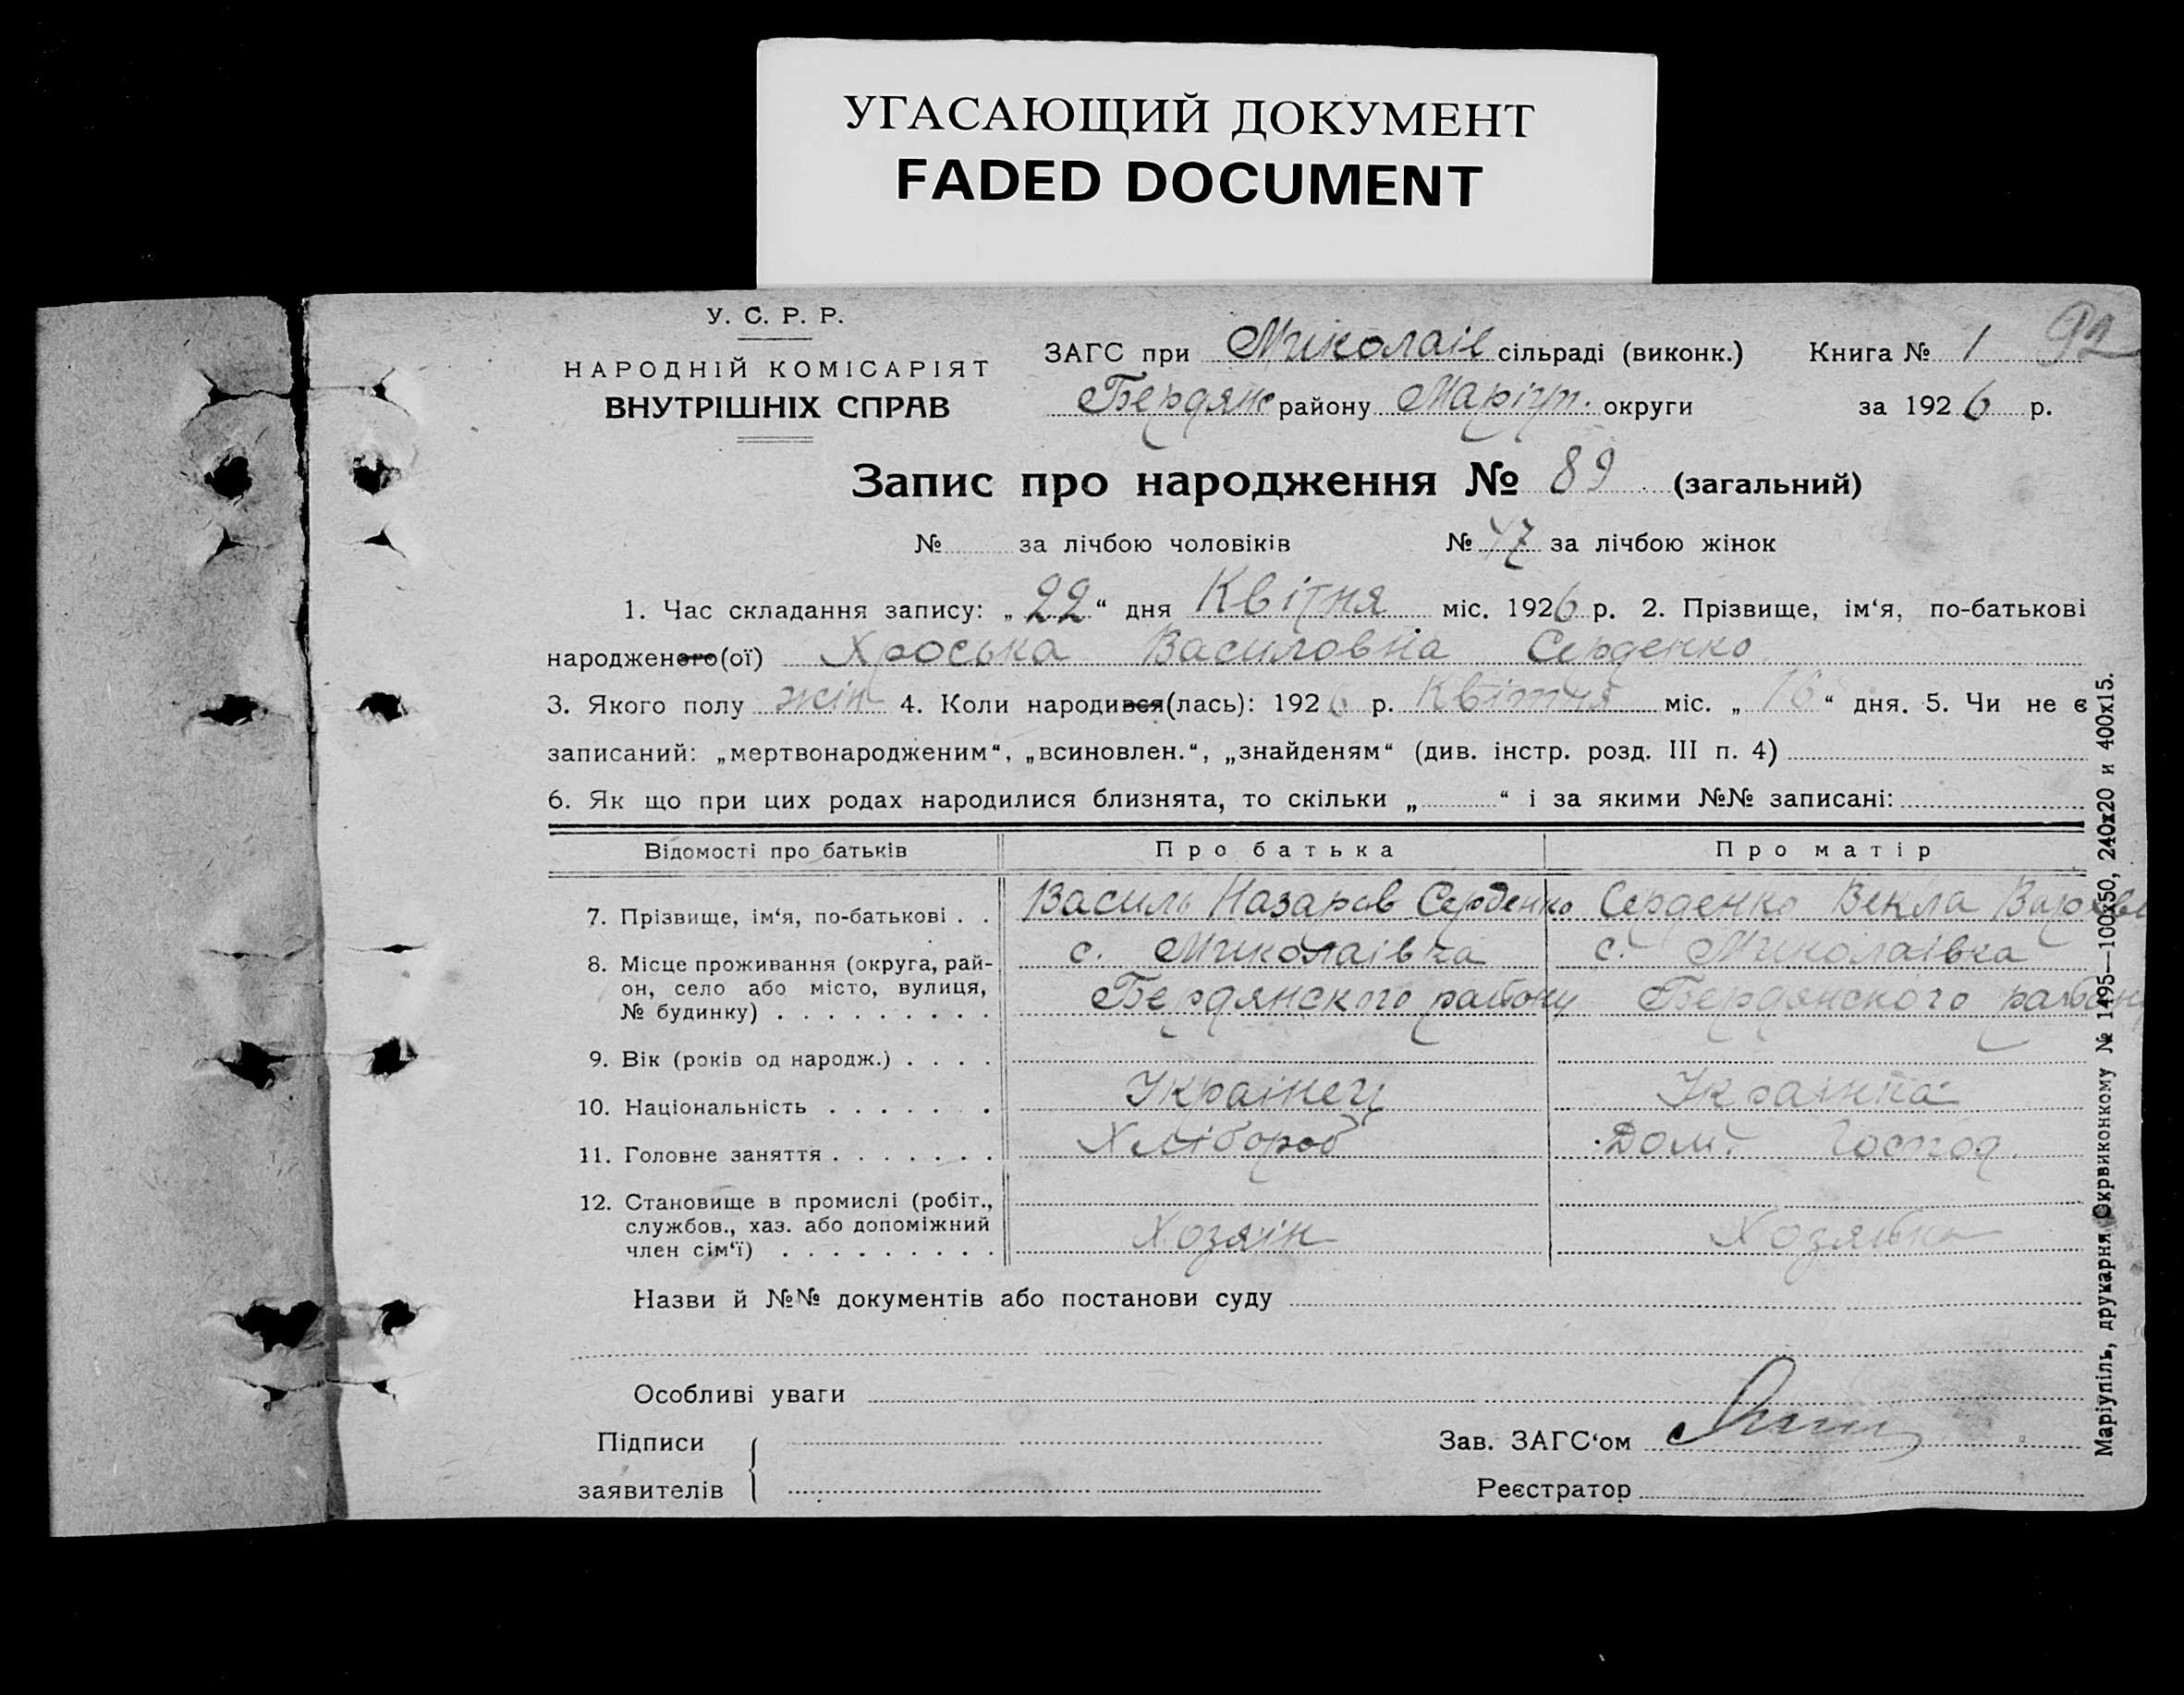 УГАСАЮЩИЙ ДОКУМЕНТ
FADED DOCUMENT
У. С. Р. Р.
НАРОДНІЙ КОМІСАРІЯТ
ВНУТРІШНІХ СПРАВ
ЗАГС при Миколаів сільраді (виконк.) Книга № 1 92
Бердянс району Маріуп. округи за 1926 р.
Запис про народження № 89 (загальний)
№ за лічбою чоловіків № 47 за лічбою жінок
1. Час складання запису: „22“ дня Квітня міс. 1926 р. 2. Прізвище, ім‘я, по-батькові
народженого(ої) Хроська Василовна Серденко
3. Якого полу жін 4. Коли народився(лась): 1926 р. Квітня міс. „16“ дня. 5. Чи не є
записаний: „мертвонародженим“, „всиновлен.“, „знайденям“ (див. інстр. розд. III п. 4)
6. Як що при цих родах народилися близнята, то скільки „ “ і за якими №№ записані:
Відомості про батьків Про батька Про матір
7. Прізвище, ім‘я, по-батькові . . Василь Назаров Серденко Серденко Векла
8. Місце проживання (округа, рай- с. Миколаівка с. Миколаівка
он, село або місто, вулиця, Бердянского району Бердянского району
№ будинку) . . . . . . . . .
9. Вік (років од народж.) . . . .
10. Національність . . . . . . . Украінец Украінка
11. Головне заняття . . . . . . . Хлібороб Дом. Господ.
12. Становище в промислі (робіт.,
службов., хаз. або допоміжний Хозяін Хозяйка
член сім‘ї) . . . . . . . . .
Назви й №№ документів або постанови суду
Особливі уваги
Підписи Зав. ЗАГС‘ом
заявителів Реєстратор
Маріупіль, друкарня Окрвиконкому № 1495—100х50, 240х20 и 400х15.